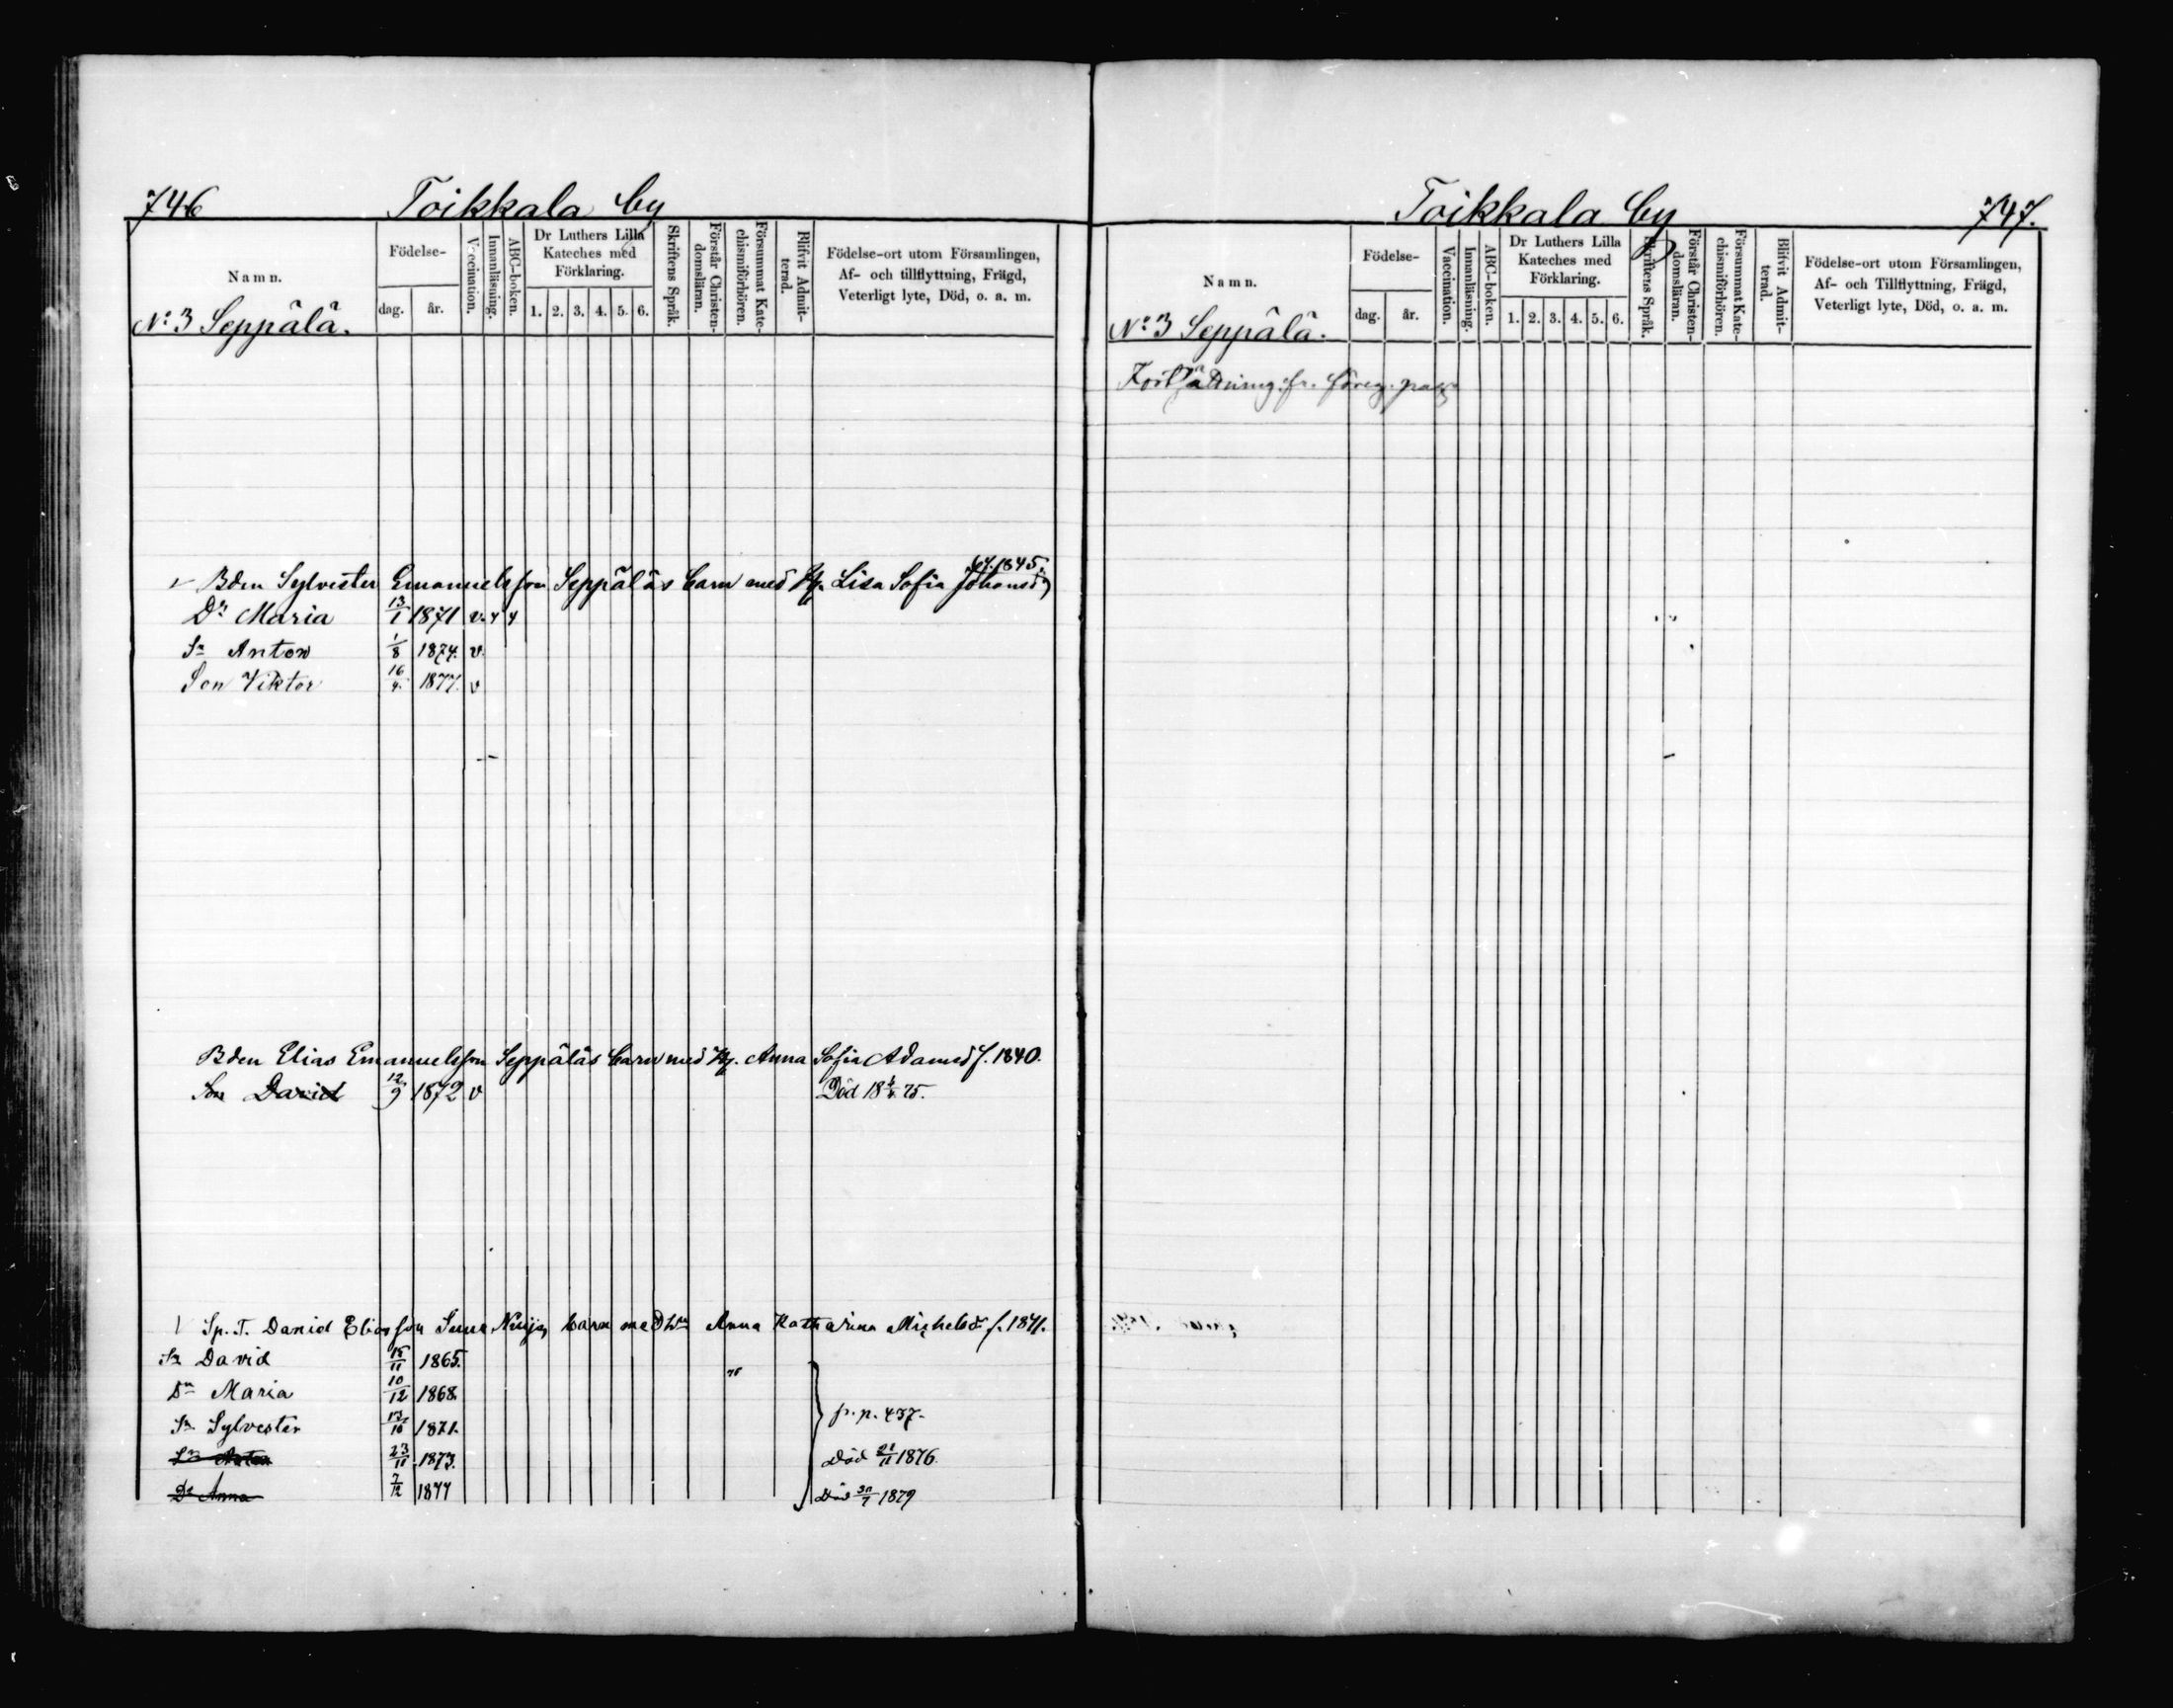 746 Toikkala by
Namn. Födelse- dag. år. Vaccination. Innanläsning. ABC-boken. Dr Luthers Lilla Kateches med Förklaring. 1. 2. 3. 4. 5. 6. Skriftens Språk. Förstår Christendomsläran. Försummat Katechismiförhören. Blifvit Admitterad. Födelse-ort utom Församlingen, Af- och tillflyttning, Frägd, Veterligt lyte, Död, o. a. m.
No 3 Seppälä.
Bden Sylvester Emanuelsson Seppäläs barn med H. Lisa Sofia Johansd. f. 1845.
Dr Maria 13/1 1871 v.
Sn Anton 1/8 1874. v.
Son Viktor 16/4. 1877. v
Bden Elias Emanuelsson Seppäläs barn med H. Anna Sofia Adamsd f. 1840.
Son David 12/9 1872 v Död 18 75.
Sp. T. David Eliasson barn med Hu Anna Katharina Michelsdr f. 1841.
Sn David 15/11 1865.
Dr Maria 10/12 1868.
Sn Sylvester 1871. fr. p. 437.
Sn Anton 23/11 1873. Död 21/11 1876.
Dr Anna 7/12 1877 Död 1879
Toikkala by 747.
Namn. Födelse- dag. år. Vaccination. Innanläsning. ABC-boken. Dr Luthers Lilla Kateches med Förklaring. 1. 2. 3. 4. 5. 6. Skriftens Språk. Förstår Christendomsläran. Försummat Katechismiförhören. Blifvit Admitterad. Födelse-ort utom Församlingen, Af- och Tillflyttning, Frägd, Veterligt lyte, Död, o. a. m.
No 3 Seppälä.
Fortsättning fr. föreg. pag.